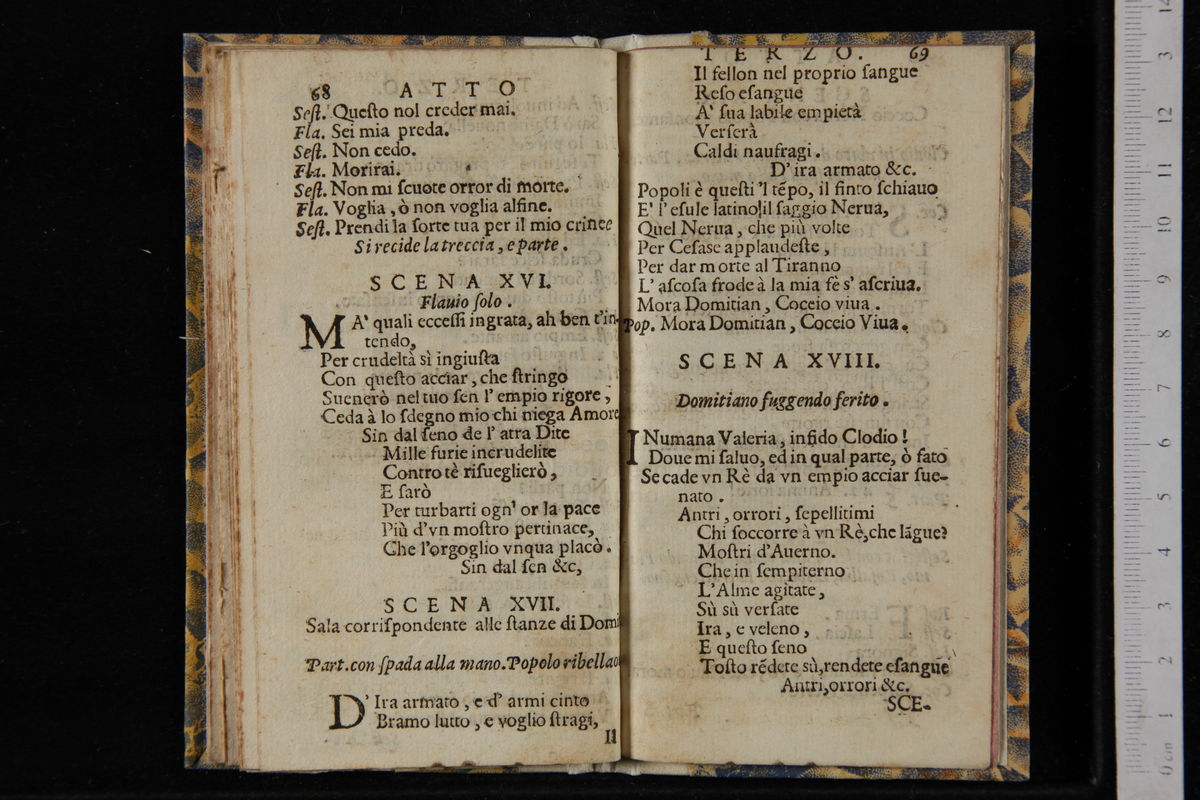 68 ATTO
Seſt. Queſto nol creder mai.
Fla. Sei mia preda.
Seſt. Non cedo.
Fla. Morirai.
Seſt. Non mi ſcuote orror di morte.
Fla. Voglia, ò non voglia alfine.
Seſt. Prendi la ſorte tua per il mio crinee
Si recide la treccia, e parte.
SCENA XVI.
Flauio ſolo.
MA' quali ecceſſi ingrata, ah ben t'in-
tendo,
Per crudeltà sì ingiuſta
Con queſto acciar, che ſtringo
Suenerò nel tuo ſen l' empio rigore,
Ceda à lo ſdegno mio chi niega Amore
Sin dal ſeno de l' atra Dite
Mille furie incrudelite
Contro tè riſueglierò,
E ſarò
Per turbarti ogn' or la pace
Più d'vn moſtro pertinace,
Che l'orgoglio vnqua placò.
Sin dal ſen &c,
SCENA XVII.
Sala corriſpondente alle ſtanze di Domi
Part. con ſpada alla mano. Popolo ribellao
D' Ira armato, e d' armi cinto
Bramo lutto, e voglio ſtragi,
Il
TERZO. 69
Il fellon nel proprio ſangue
Reſo eſangue
A' ſua labile empietà
Verſerà
Caldi naufragi.
D' ira armato &c.
Popoli è queſti 'l tẽpo, il finto ſchiauo
E' l' eſule latino, il ſaggio Nerua,
Quel Nerua, che più volte
Per Ceſaſe applaudeſte,
Per dar morte al Tiranno
L' aſcoſa frode à la mia fè s' aſcriua.
Mora Domitian, Cocceio viua.
Pop. Mora Domitian, Cocceio Viua.
SCENA XVIII.
Domitiano fuggendo ferito.
INumana Valeria, infido Clodio!
Doue mi ſaluo, ed in qual parte, ò fato
Se cade vn Rè da vn empio acciar ſue-
nato.
Antri, orrori, ſepellitimi
Chi ſoccorre à vn Rè, che lãgue?
Moſtri d'Auerno.
Che in ſempiterno
L'Alme agitate,
Sù sù verſate
Ira, e veleno,
E queſto ſeno
Toſto rẽdete sù, rendete eſangue
Antri, orrori &c.
SCE-
0 cm 1 2 3 4 5 6 7 8 9 10 11 12 13 14